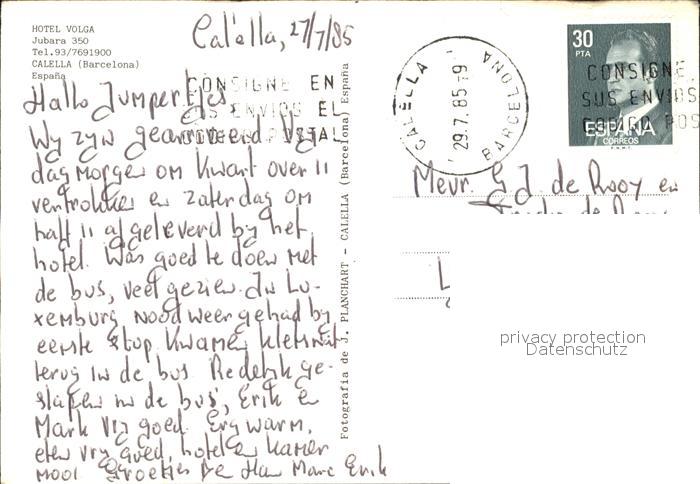 HOTEL VOLGA
Jubara 350
Tel.93/7691900
CALELLA (Barcelona)
España
Calella, 27/7/85
Hallo Jumpertjes
Wy zyn gearriveerd. Vrij
dag morgen om kwart over 11
vertrokken en zaterdag om
half 11 afgeleverd by het
hotel. Was goed te doen met
de bus, veel gezien. In Lu-
xemburg noodweer gehad by
eerste stop. Kwamen kletsnat
terug in de bus. Redelijk ge-
slapen in de bus, Erik en
Mark vrij goed. Erg warm,
eten vry goed, hotel en kamer
mooi Groetjes Han Marc Erik
Fotografía de J. PLANCHART - CALELLA (Barcelona) España
CONSIGNE EN
SUS ENVIOS EL
CODIGO POSTAL
CALELLA
29.7.85-19
BARCELONA
30
PTA
ESPAÑA
CORREOS
F.N.M.T.
CONSIGNE
SUS ENVIOS
CODIGO POS
Mevr. G.J. de Rooy en
de
L
privacy protection
Datenschutz